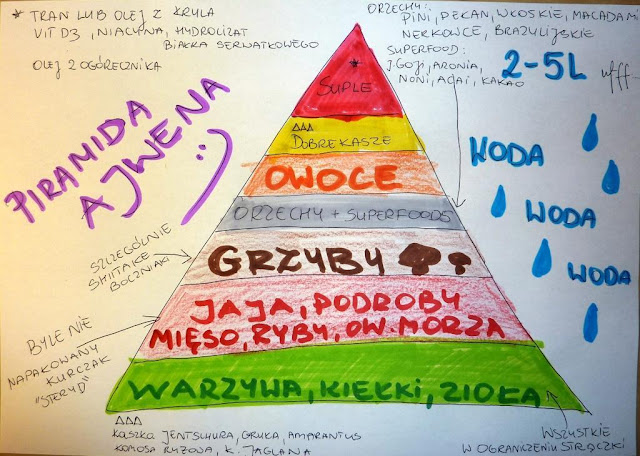 * TRAN LUB OLEJ Z KRYLA
VIT D3, NIACYNA, HYDROLIZAT
BIAŁKA SERWATKOWEGO
OLEJ Z OGÓRECZNIKA
ORZECHY:
PINI, PEKAN, WŁOSKIE, MACADAMI
NERKOWCE, BRAZYLIJSKIE
SUPERFOOD:
J. GOJI, ARONIA,
NONI, ACAI, KAKAO
2-5L ufff
PIRAMIDA
AJWENA
:)
*
SUPLE
ΔΔΔ
DOBRE KASZE
OWOCE
ORZECHY + SUPERFOODS
GRZYBY
JAJA, PODROBY
MIĘSO, RYBY, OW. MORZA
WARZYWA, KIEŁKI, ZIOŁA
WODA
WODA
WODA
SZCZEGÓLNIE
SHIITAKE
BOCZNIAKI
BYLE NIE
NAPAKOWANY
KURCZAK
"STERYD"
ΔΔΔ
KASZKA JENTSCHURA, GRYKA, AMARANTUS
KOMOSA RYŻOWA, K. JAGLANA
WSZYSTKIE
W OGRANICZENIU STRĄCZKI